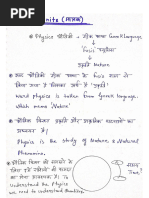 Units (मात्रक)
Physics भौतिकी → ग्रीक भाषा Greek language
"fusis" फ्यूसिस
प्रकृति Nature
शब्द भौतिकी ग्रीक भाषा के fusis से लिया
गया है जिसका अर्थ प्रकृति है।
word physics is taken from Greek language
which means "Nature".
भौतिक विज्ञान प्रकृति और प्राकृतिक घटनाओं का
अध्ययन है।
Physics is the study of Nature & Natural
Phenomena.
भौतिक विज्ञान को समझने के
लिए हमें
को समझने की आवश्यकता है।
To understand the Physics
we need to understand
समय
Time?